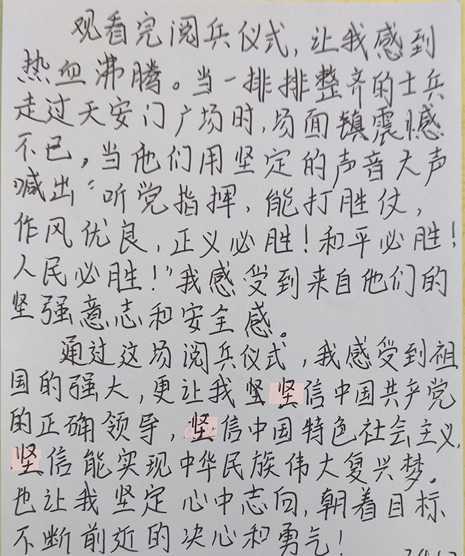 观看完阅兵仪式，让我感到
热血沸腾。当一排排整齐的士兵
走过天安门广场时，场面镇震憾
不已，当他们用坚定的声音大声
喊出“听党指挥，能打胜仗，
作风优良，正义必胜！和平必胜！
人民必胜！”我感受到来自他们的
坚强意志和安全感。
通过这场阅兵仪式，我感受到祖
国的强大，更让我坚坚信中国共产党
的正确领导，坚信中国特色社会主义，
坚信能实现中华民族伟大复兴梦。
也让我坚定心中志向，朝着目标
不断前近的决心和勇气！